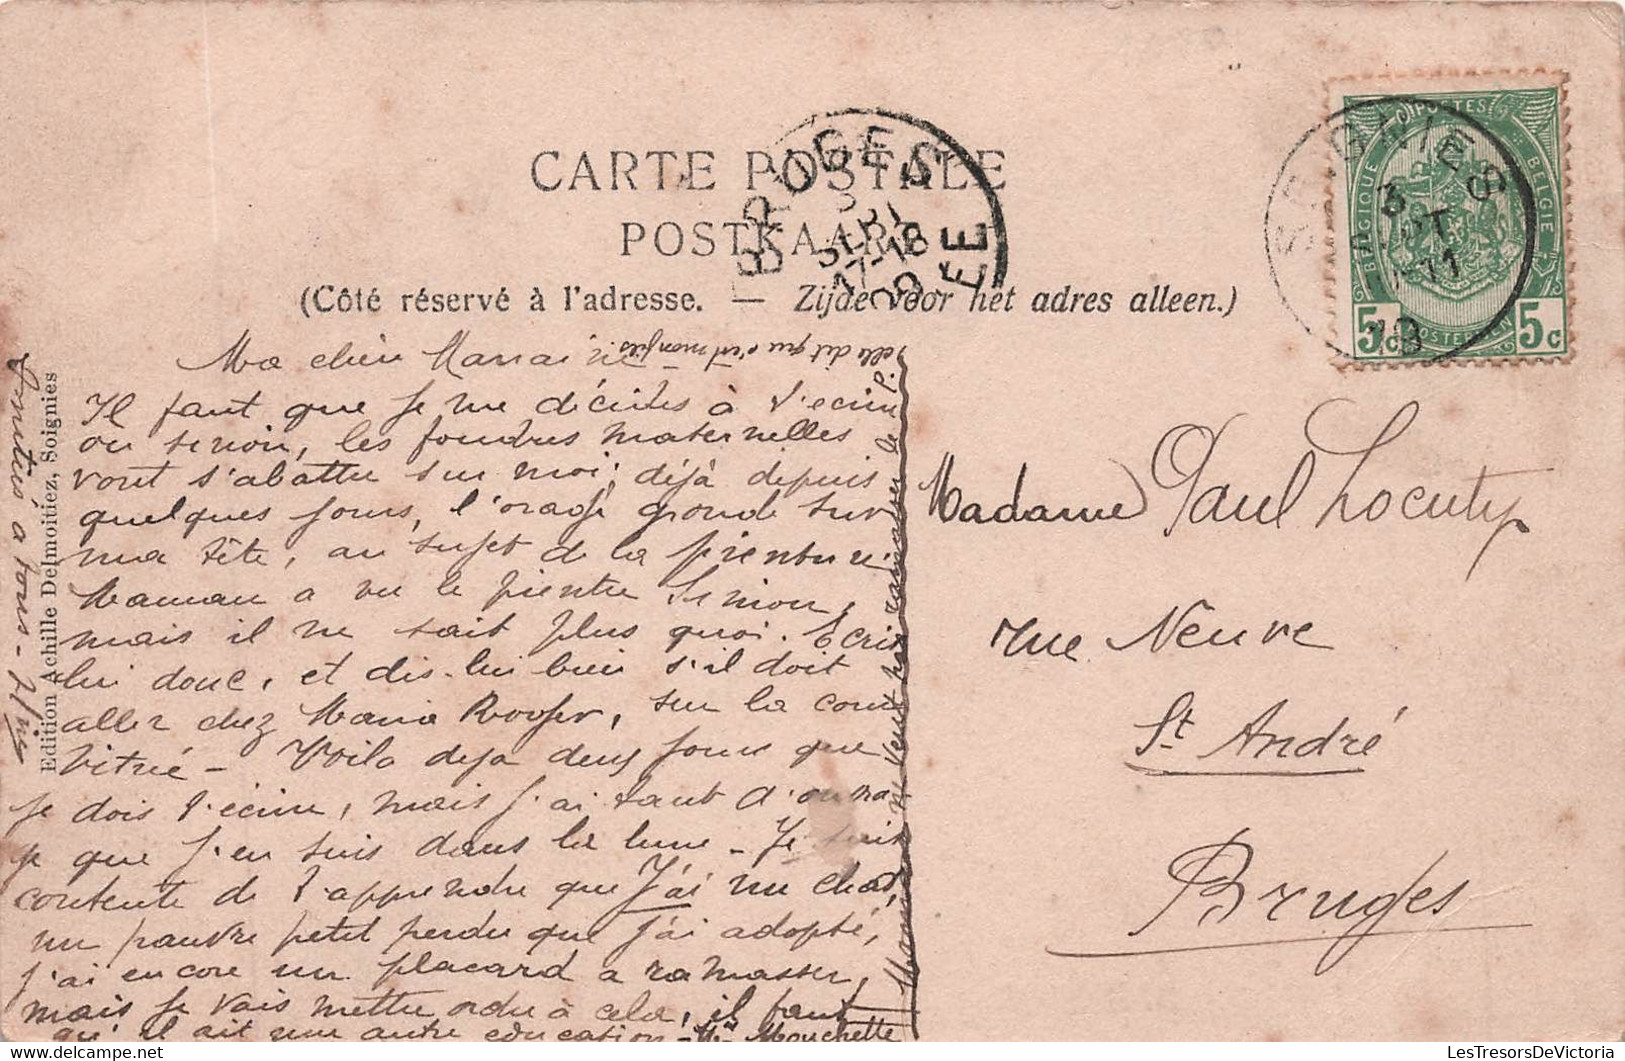 CARTE POSTALE
POSTKAART
(Côté réservé à l'adresse. — Zijde voor het adres alleen.)
BRUGES
17-18
SOIGNIES
3
11
18
POSTES
BELGIQUE
BELGIE
POSTERIJEN
5c 5c
Edition Achille Delmoitiez, Soignies
Ma chère Marraine
Il faut que je me décides à t'écrire
ou sinon, les foudres maternelles
vont s'abattre sur moi; déjà depuis
quelques jours, l'orage gronde sur
ma tête, au sujet de la peinture
Maman a vu le peintre Simon,
mais il ne sait plus quoi. Ecris
lui donc, et dis-lui bien s'il doit
aller chez Maria, sur la cour
vitrée – Voilà deja deux jours que
je dois t'écrire, mais j'ai tant d'ouvra
ge que j'en suis dans la lune – Je suis
contente de t'apprendre que J'ai un chat,
un pauvre petit perdu que j'ai adopté,
j'ai encore un placard a ramasser,
mais je vais mettre ordre à cela, il faut
qu'il ait une autre education – Mouchette
Maman ne veut pas ramasser le p.
elle dit que c'est mon fils
Amitiés a tous –
Madame Paul
rue Neuve
St André
Bruges
LesTresorsDeVictoria
delcampe.net